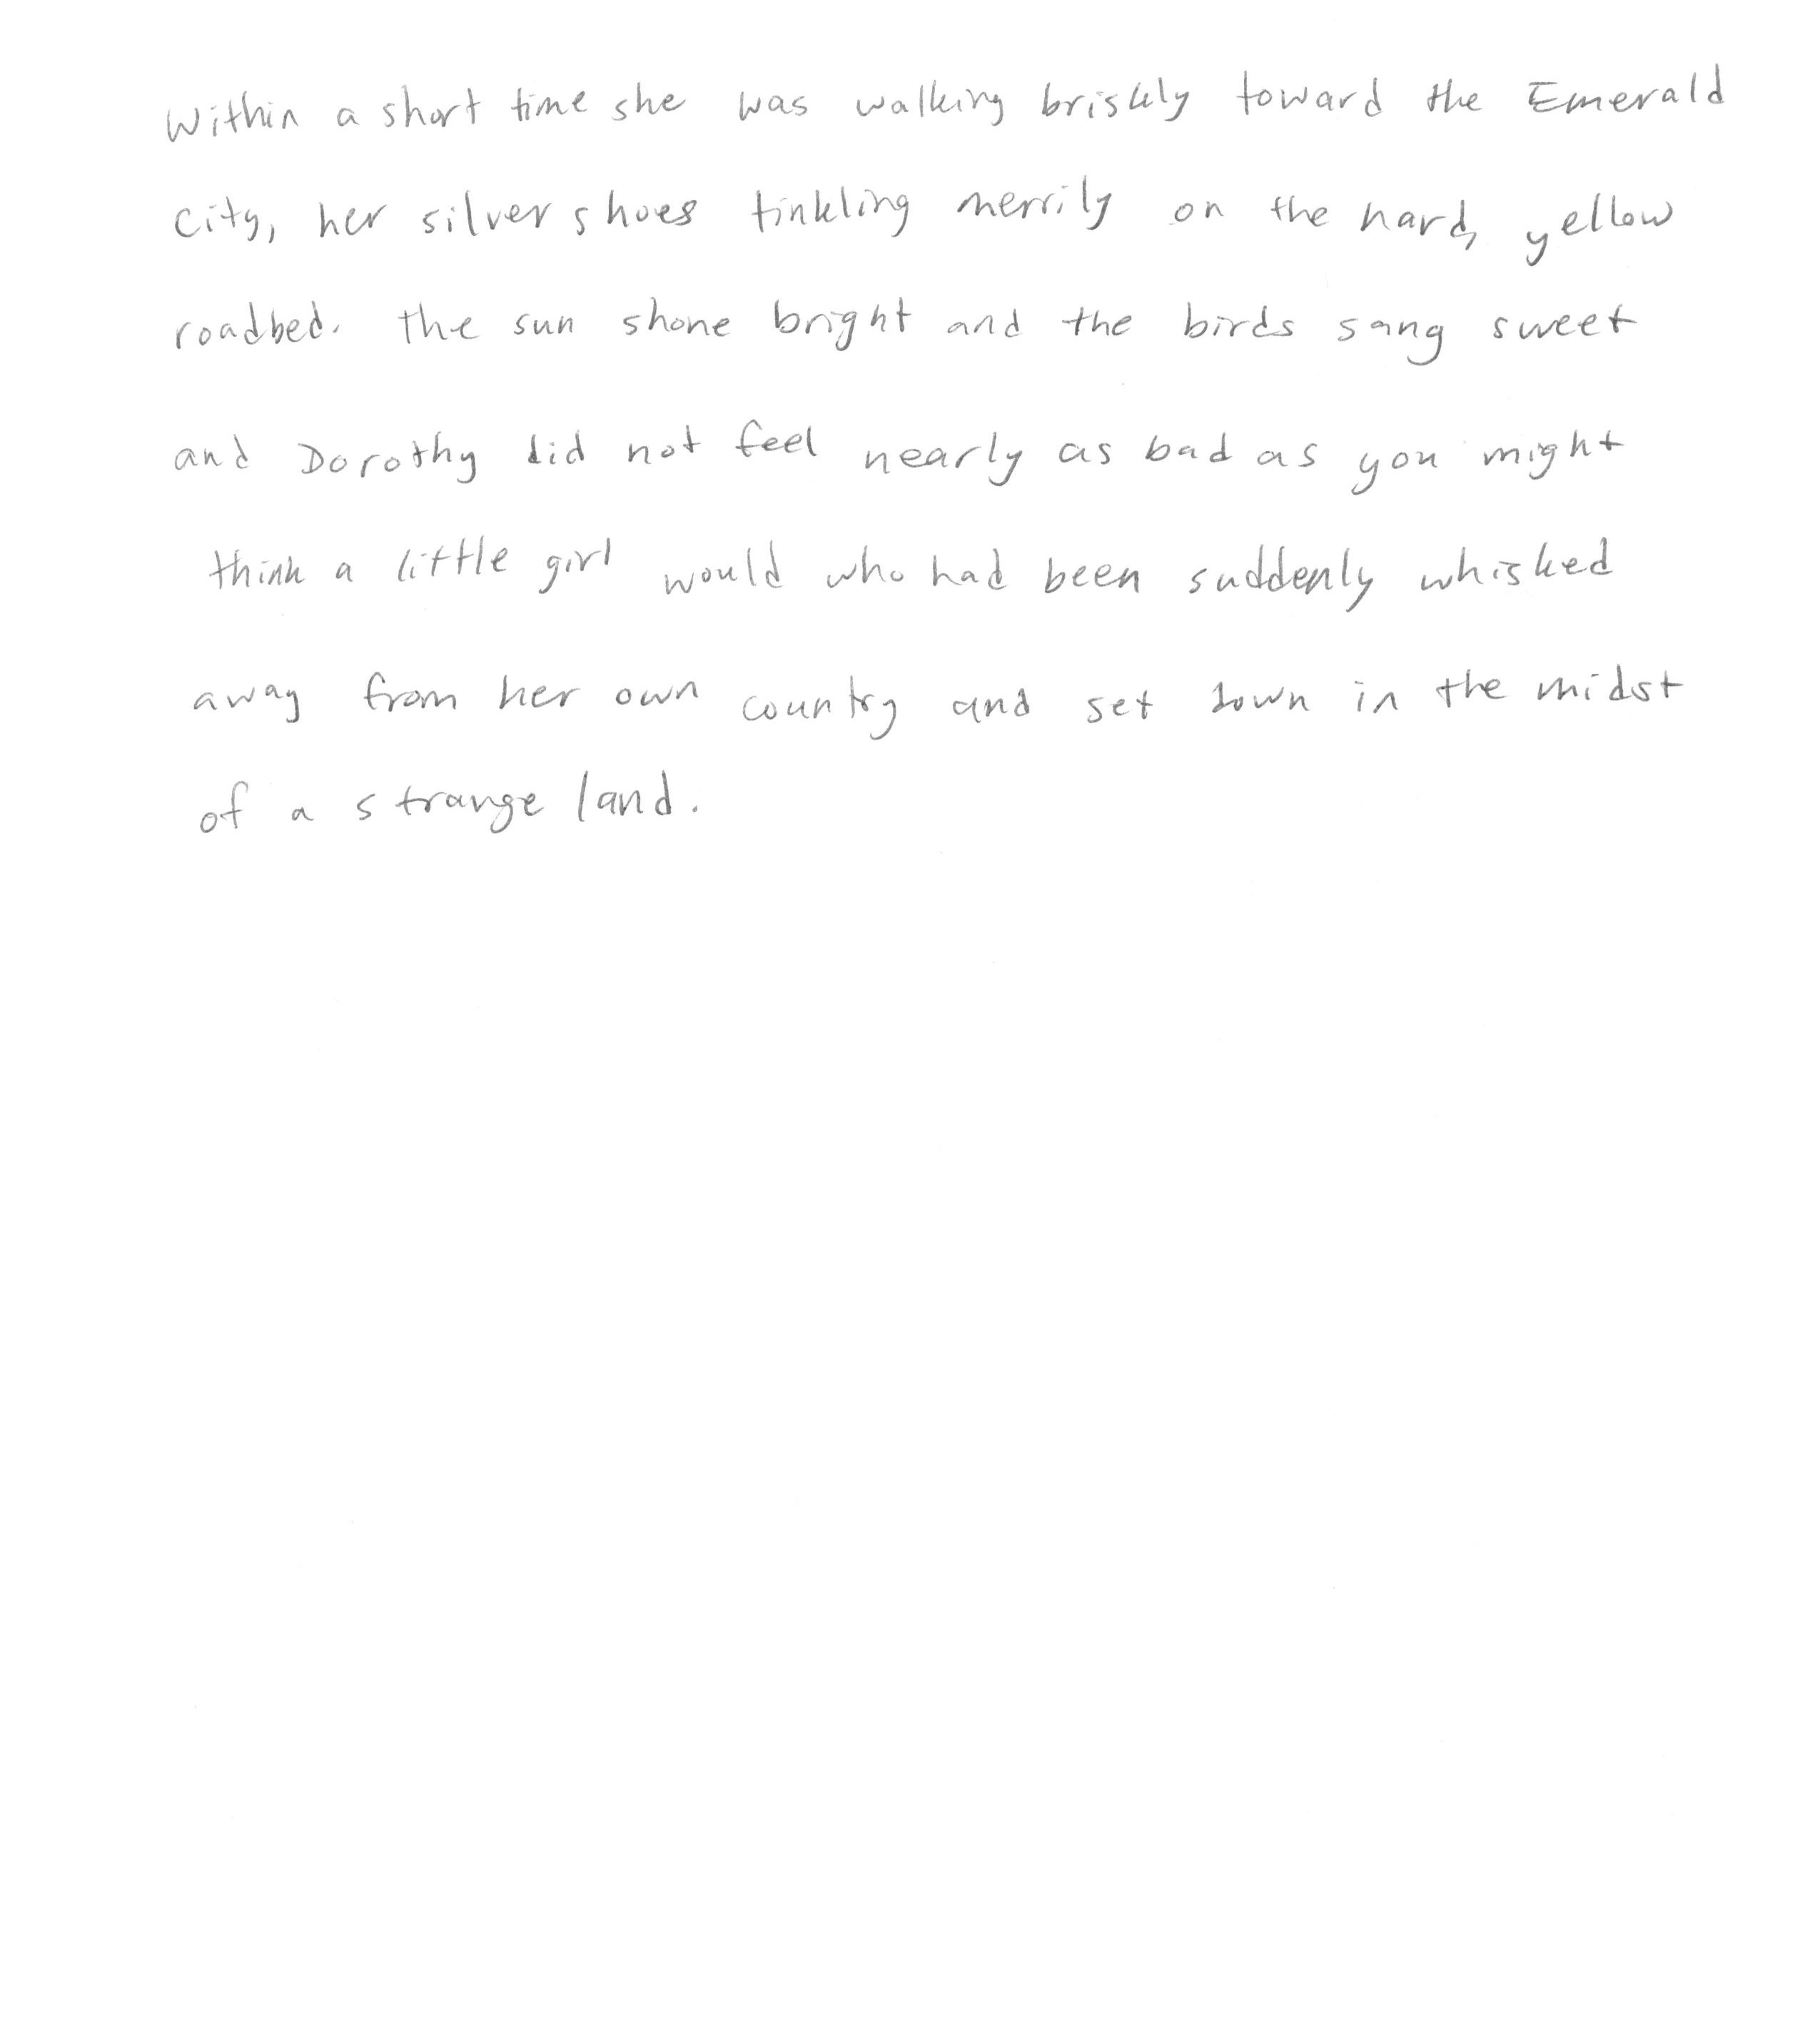 Within a short time she was walking briskly toward the Emerald
City, her silver shoes tinkling merrily on the hard, yellow
roadbed. the sun shone bright and the birds sang sweet
and Dorothy did not feel nearly as bad as you might
think a little girl would who had been suddenly whisked
away from her own country and set down in the midst
of a strange land.